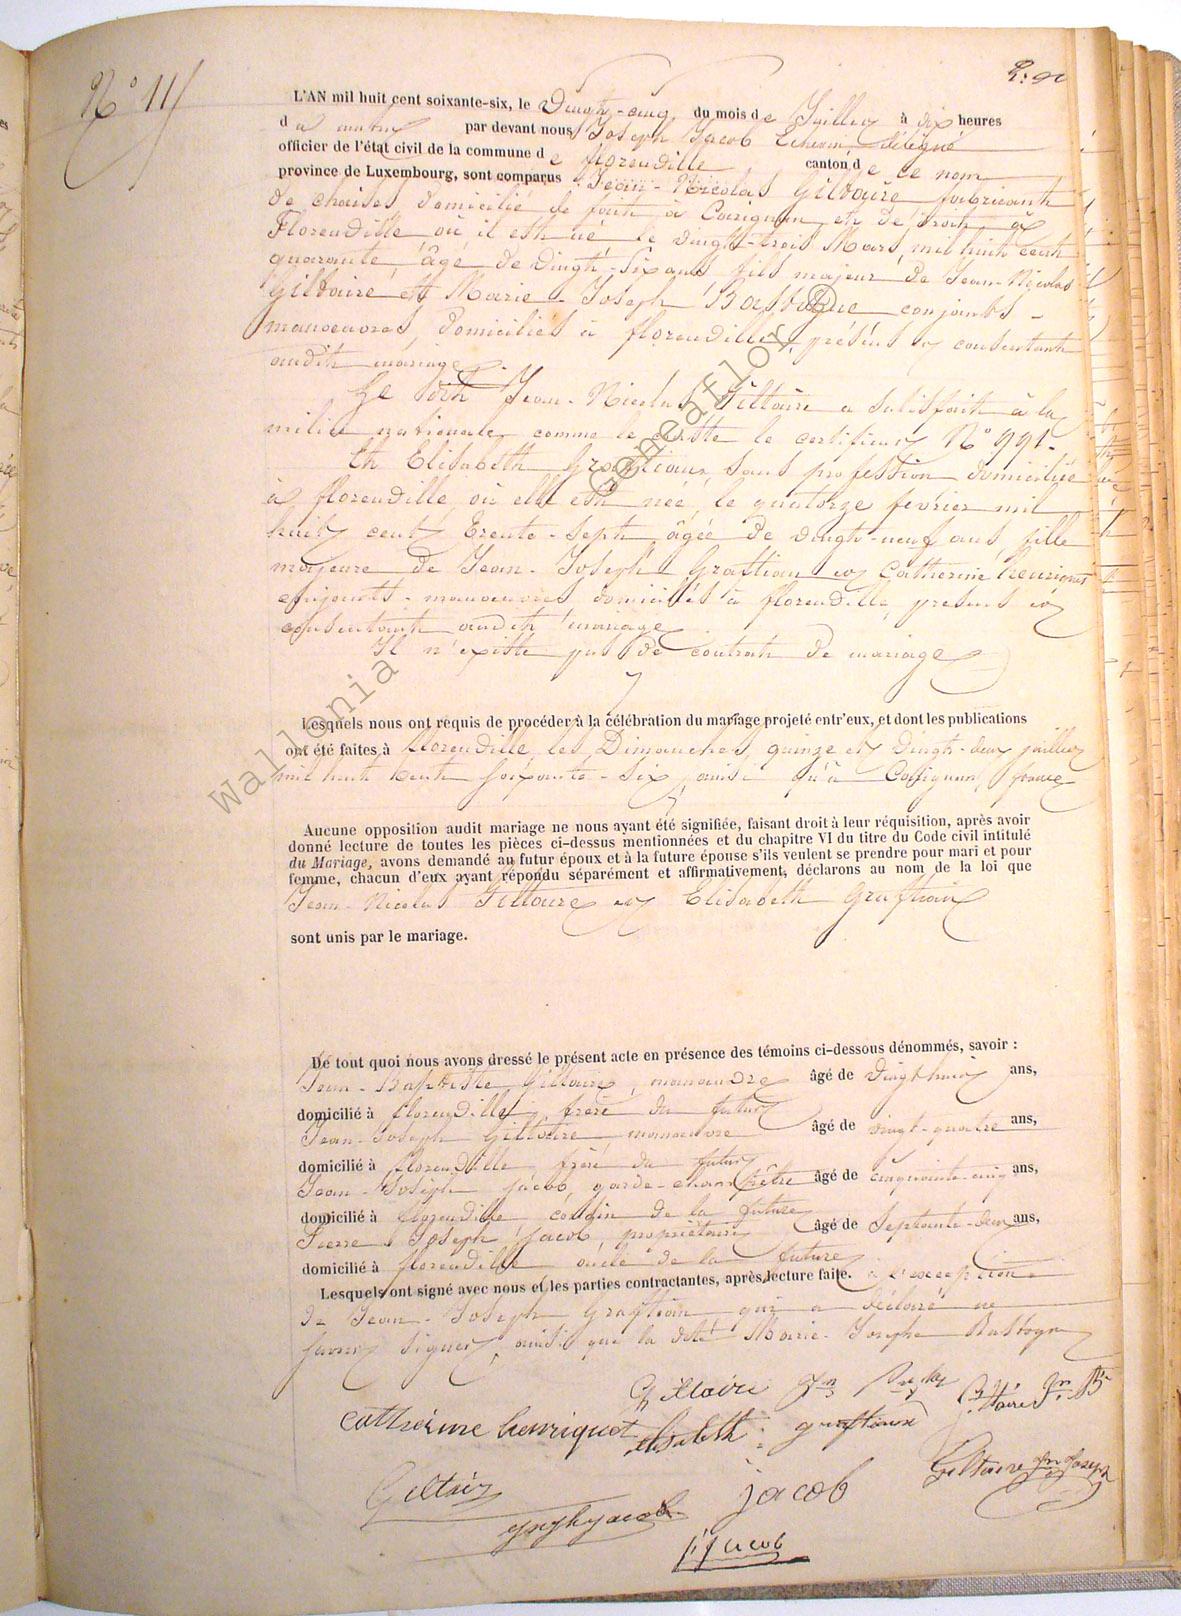 N° 11
L'AN mil huit cent soixante-six, le Vingt-cinq du mois de Juillet à dix heures
du matin par devant nous Joseph Jacob Echevin délégué
officier de l'état civil de la commune de florenville canton de ce nom
province de Luxembourg, sont comparus Jean-Nicolas Giltaire fabricant
de chaises domicilié de fait à Carignan et de droit à
Florenville où il est né le vingt-trois Mars mil huit cent
quarante, âgé de vingt-six ans fils majeur de Jean-Nicolas
Giltaire et Marie-Joseph Bastogne conjoints
manoeuvres, domiciliés à florenville, présens et consentant
audit mariage
Le dit Jean-Nicolas Giltaire a satisfait à la
milice nationale comme le constate le certificat N° 991.
Et Elisabeth Graftiaux, sans profession domiciliée
à florenville où elle est née le quatorze février mil
huit cent trente-sept âgée de vingt-neuf ans, fille
majeure de Jean-Joseph Graftiau et Catherine henriquet
conjoints manoeuvres domiciliés à florenville, présens et
consentant audit mariage
Il n'existe pas de contrat de mariage
Lesquels nous ont requis de procéder à la célébration du mariage projeté entr'eux, et dont les publications
ont été faites à florenville les Dimanches quinze et vingt-deux juillet
mil huit cent soixante-six, ainsi qu'à Carignan, france
Aucune opposition audit mariage ne nous ayant été signifiée, faisant droit à leur réquisition, après avoir
donné lecture de toutes les pièces ci-dessus mentionnées et du chapitre VI du titre du Code civil intitulé
du Mariage, avons demandé au futur époux et à la future épouse s'ils veulent se prendre pour mari et pour
femme, chacun d'eux ayant répondu séparément et affirmativement, déclarons au nom de la loi que
Jean-Nicolas Giltaire et Elisabeth Graftiaux
sont unis par le mariage.
De tout quoi nous avons dressé le présent acte en présence des témoins ci-dessous dénommés, savoir :
Jean-Baptiste Giltaire, manoeuvre âgé de vingt huit ans,
domicilié à florenville, frère du futur
Jean-Joseph Giltaire manoeuvre âgé de vingt-quatre ans,
domicilié à florenville frère du futur
Jean-Joseph jacob, garde-champêtre âgé de cinquante-cinq ans,
domicilié à florenville, cousin de la future
Pierre Joseph jacob, propriétaire âgé de Septante-deux ans,
domicilié à florenville oncle de la future
Lesquels ont signé avec nous et les parties contractantes, après lecture faite. à l'exception
de Jean-Joseph Graftiau qui a déclaré ne
savoir signer, ainsi que la dite Marie-Josephe Bastogne
Giltaire Jn giltaire Jn Bte
catherine henriquet Elisabeth graftiaux
Giltaire jacob Giltaire Jn Joseph
jacob
Wallonia Geneaflor ®